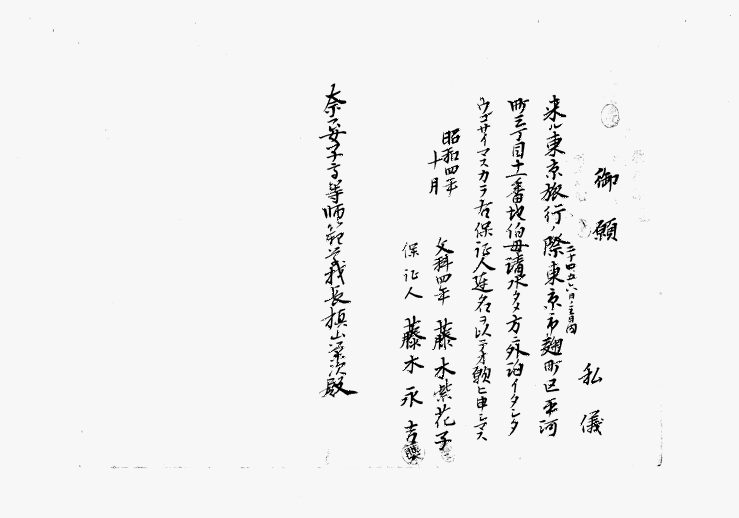 御願
私儀
来ル東京旅行ノ際東京市麹町区平河
二十四五六日ノ三日間
町三丁目十一番地伯母清水タダ方ニ外泊イタシタ
ウゴザイマスカラ右保証人連名ヲ以テオ願ヒ申シマス
昭和四年
十月
文科四年 藤木紫花子
保証人 藤木永吉
奈良女子高等師範学校長槙山栄次殿